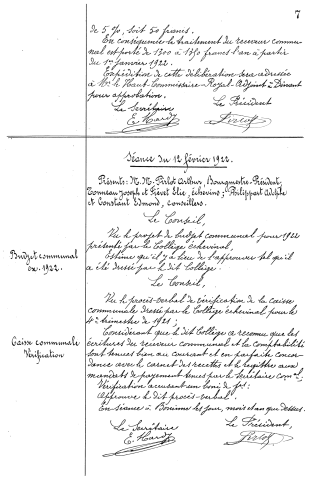 7
de 5 %, soit 50 francs.
En conséquence le traitement du receveur commu-
nal est porté de 1300 à 1350 francs l'an à partir
du 1er janvier 1922.
Expédition de cette délibération sera adressée
à Mr le Haut-Commissaire-Royal-Adjoint à Dinant
pour approbation.
Le Secrétaire
Le Président
E. Hardy
Pirlot
Séance du 12 février 1922.
Présents: M. M. Pirlot Arthur, Bourgmestre-Président,
Tonneau Joseph et Piévet Elie, échevins; Philippart Adolphe
et Constant Edmond, conseillers.
Le Conseil,
Budget communal
de 1922.
Vu le projet de budget communal pour 1922
présenté par le Collège échevinal,
Estime qu'il y a lieu de l'approuver tel qu'il
a été dressé par le dit Collège.
Le Conseil,
Caisse communale
Vérification
Vu le procès-verbal de vérification de la caisse
communale dressé par le Collège échevinal pour le
4e trimestre de 1921;
Considérant que le dit Collège a reconnu que les
écritures du receveur communal et la comptabilité
sont tenues bien au courant et en parfaite concor-
dance avec le carnet des recettes et le registre aux
mandats de payement tenus par le Secrétaire comal,
Vérification accusant un boni de frs:
Approuve le dit procès-verbal.
En séance à Bouvines les jour, mois et an que dessus.
Le Secrétaire
Le Président,
E. Hardy
Pirlot